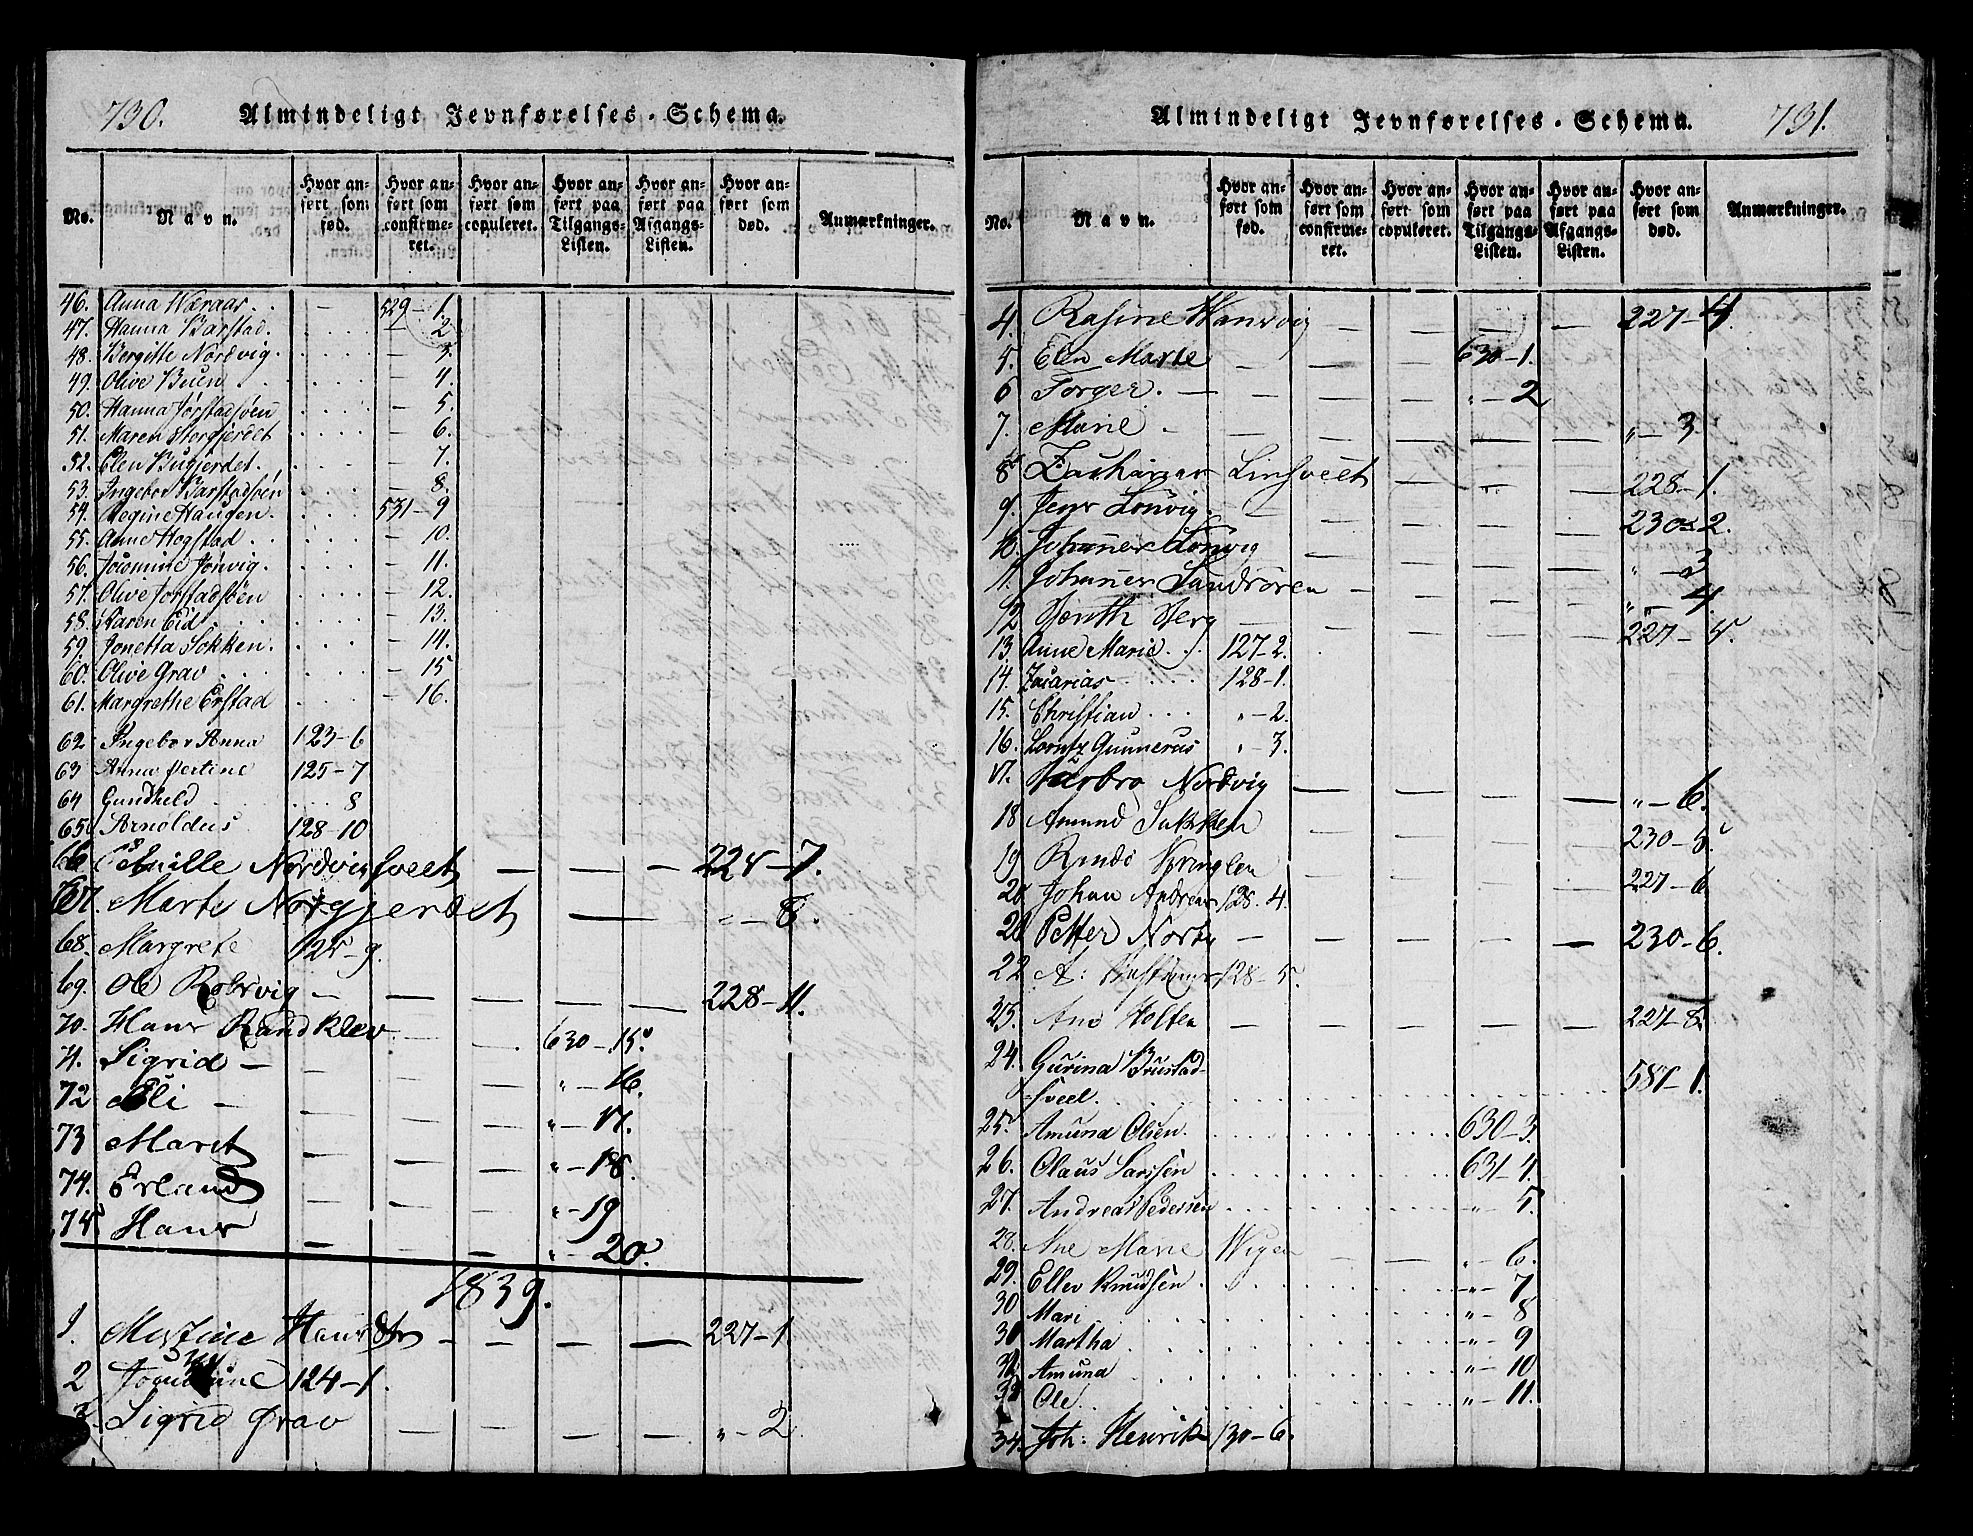 730.
Almindeligt Jevnførelses-Schema.
No. Navn. Hvor anført som fød. Hvor anført som confirmeret. Hvor anført som copuleret. Hvor anført paa Tilgangs-Listen. Hvor anført paa Afgangs-Listen. Hvor anført som død. Anmærkninger.
46. Anna Wæraas . . - 529-1.
47. Hanna Barstad. . . . . - 2
48. Bergitte Nordvig. . . . . - 3.
49. Olive Buen . . . . . - 4.
50. Hanna Jørstadsøen . . . . - 5.
51. Maren Storgjerdet . . . . - 6.
52. Elen Bugjerdet. . . . . - 7.
53. Ingebor Barstadsøen . . . - 8.
54. Regine Haugen. . . . 531-9
55. Anne Hegstad . . . . . - 10.
56. Jocomine Jønvig. . . . . - 11.
57. Olive Jorstadsøen . . . - 12.
58. Karen Eid. . . . . - 13.
59. Jonetta Sokken. . . . - 14.
60. Olive Grav . . . . - 15
61. Margrethe Erstad . . . - 16.
62. Ingebor Anna 123-6
63 Anna Pertine 125-7
64 Gundheld . . . . . 8
65 Arnoldus 128-10
66 Nordvigsveet - - - 225-7.
67. Marte Norgjerdet - - „-8.
68. Margrete 125-9.
69. Ole Rolsvig - - - - - 228-11.
70. Hans Randklev - - 630-15.
71. Sigrid - - - - „-16.
72 Eli - - - - „-17.
73 Maret - - - „-18.
74. Erland - - - „-19
75 Hans - - „-20.
1839.
1. Martine Hans Dtr - - - - 227-1
2 124-1.
3. Sigrid Grav - - - - „-2
731.
Almindeligt Jevnførelses-Schema.
No. Navn. Hvor anført som fød. Hvor anført som confirmeret. Hvor anført som copuleret. Hvor anført paa Tilgangs-Listen. Hvor anført paa Afgangs-Listen. Hvor anført som død. Anmærkninger.
4. Rasine Wansvig - - - - 227-4.
5. Elen Marte - - - 630-1.
6 Torger. - - - - „-2
7. Marie - - - - - - „-3.
8 Zacharias Linsveet - - - 228-1.
9. Jens Lønvig. - - - - - 230-2.
10. Johannes Lønvig - - - - „-3
11. Johannes Sandsören - - - - „-4.
12 Berg - - - - 227-5.
13. Anne Marie . . . 127-2.
14. Zacarias . . . . 128-1.
15. Christian . . . „-2.
16. Lorntz Gunnerus „-3.
17. Barbro Nordvig - - - - „-6.
18 Amund Sukken - - - - 230-5
19 Springlen - - - - 227-6
20 Johan Andreas 128-4.
21 Petter Norby - - - - - 230-6.
22 A: 128-5.
23. Ane Holten - - - - - 227-8.
24. Gurina Brustad-
sveet. . . . . . . . . 587-1.
25. Amund Olsen. . . . . . . 630-3.
26. Claus Larssen . . . . . 631-4.
27. Andreas Pedersen . . . . . „-5.
28. Ane Marie Wigen - - „-6.
29. Ellev Knudsen. . . . . . „-7
30 Mari . . . . . . „-8
31 Martha . . . . . . „-9
32 Amund . . . . . . „-10
33 Ole. . . . . . „-11.
34. Joh: Henrik 130-6.